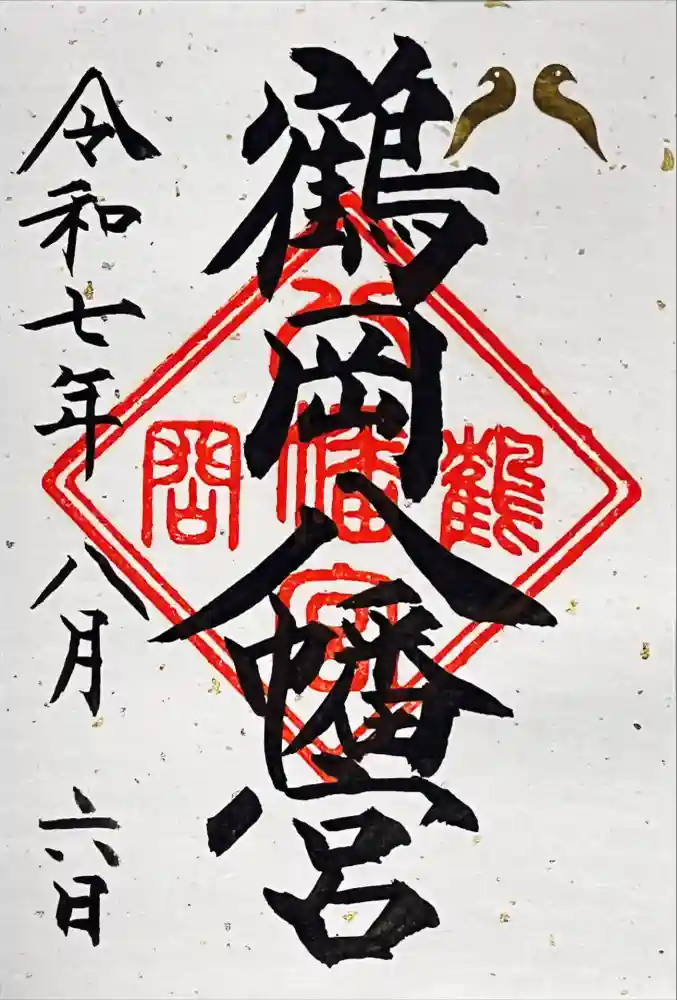 鶴岡八幡宮
鶴
八幡宮
岡
令和七年八月六日